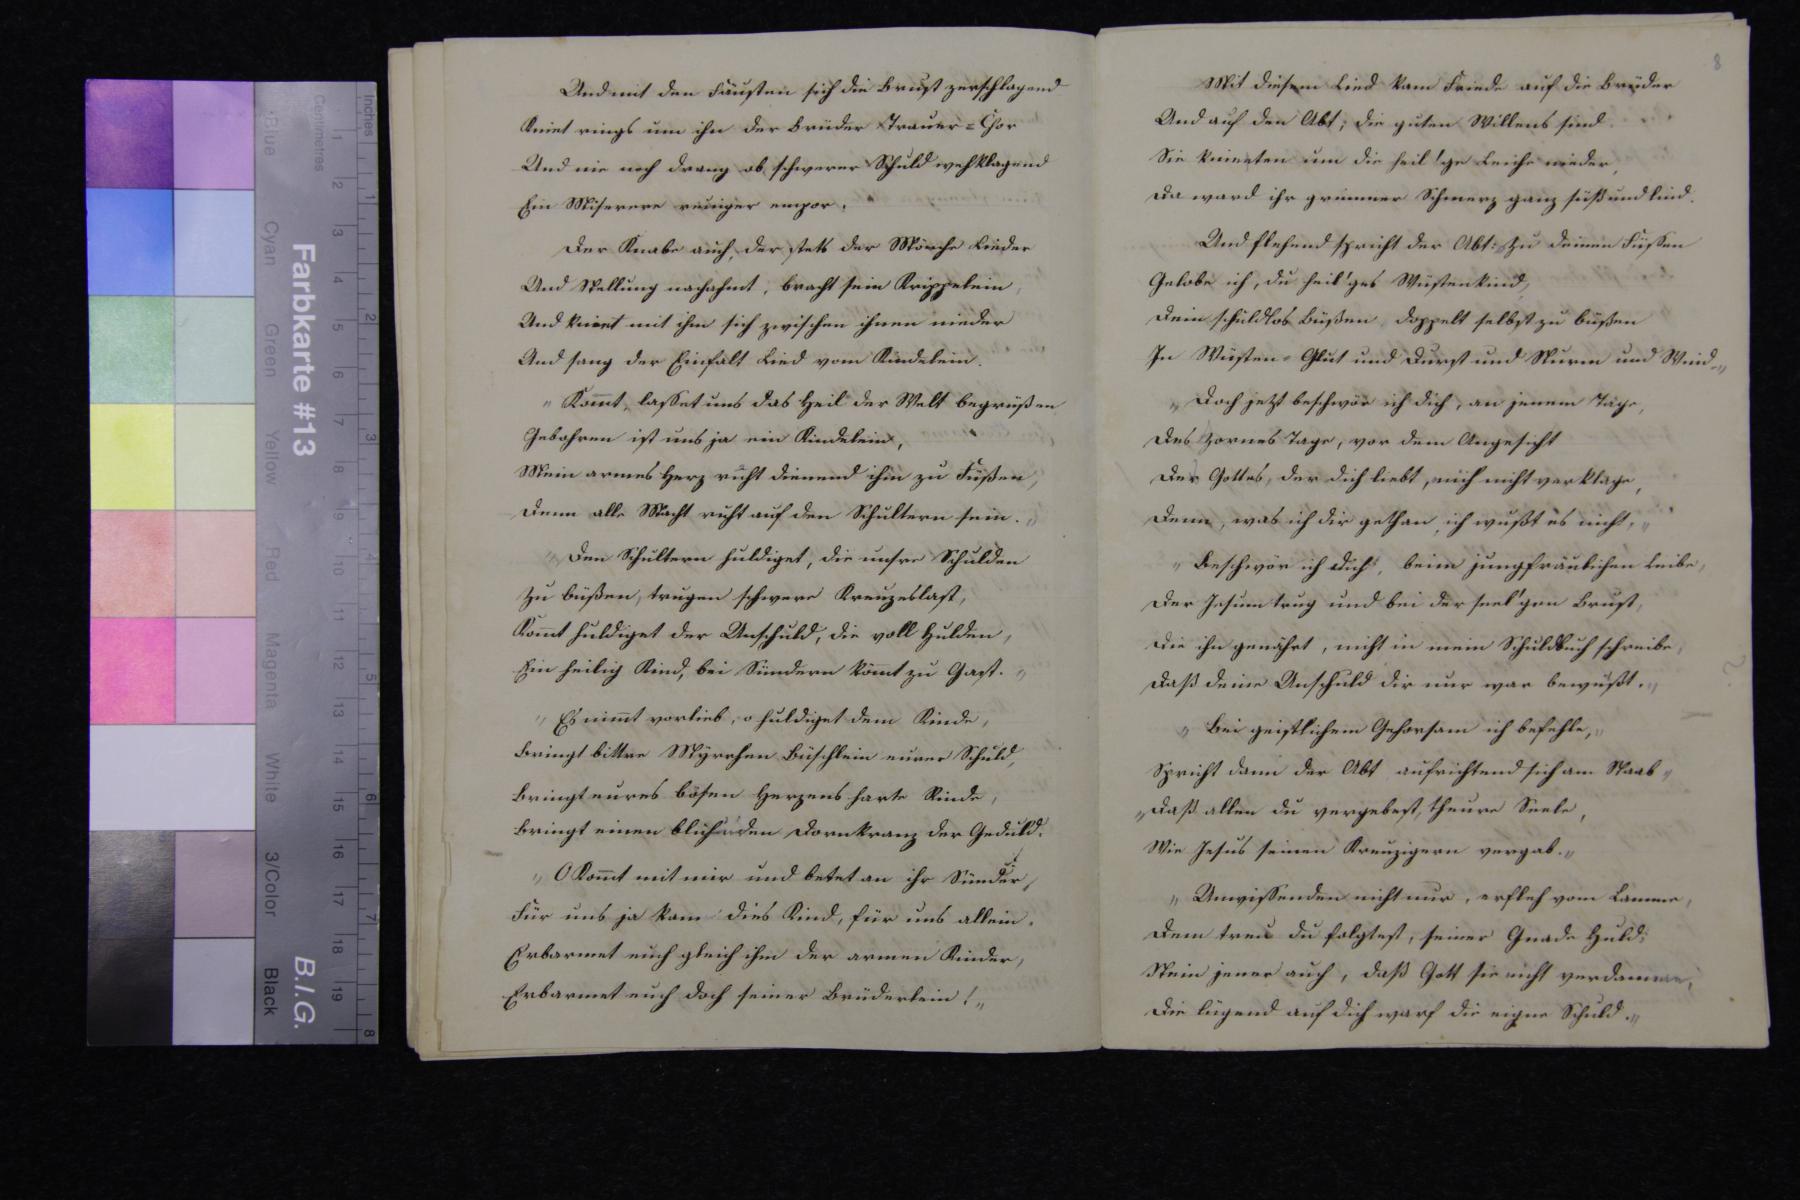 Und mit den Fäusten sich die Brust zerschlagend
Kniet rings um ihn der Brüder Trauer=Chor
Und nie noch drang ob schwerer Schuld wehklagend
Ein Miserere reuiger empor.
Der Knabe auch, der stets der Mönche Lieder
Und Stellung nachahmt, bracht sein Krippelein,
Und kniet mit ihm sich zwischen ihnen nieder
Und sang der Einfalt Lied vom Kindelein.
„Kom̅t, lasset uns das Heil der Welt begrüßen
Gebohren ist uns ja ein Kindelein,
Mein armes Herz ruht dienend ihm zu Füßen,
Denn alle Macht ruht auf den Schultern sein.„
„Den Schultern huldiget, die unsre Schulden
Zu büßen, trugen schwere Kreuzeslast,
Kom̅t huldiget der Unschuld, die voll Hulden,
Ein heilig Kind, bei Sündern köm̅t zu Gast.„
„Es nim̅t vorlieb, o huldiget dem Kinde,
Bringt bittre Myrrhen Büschlein eurer Schuld,
Bringt eures bösen Herzens harte Rinde,
Bringt einen blühenden Dornkranz der Geduld.
„O Kom̅t mit mir und betet an ihr Sünder,
Für uns ja kam dies Kind, für uns allein.
Erbarmet euch gleich ihm der armen Kinder,
Erbarmet euch doch seiner Brüderlein!„
8
Mit diesem Lied kam Friede auf die Brüder
Und auf den Abt; die guten Willens sind.
Sie knieeten um die heil'ge Leiche nieder,
Da ward ihr grimmer Schmerz ganz süß und lind.
Und flehend spricht der Abt: Zu deinen Füssen
Gelobe ich, du heil'ges Wüstenkind,
Dein schuldlos Büßen doppelt selbst zu büßen
In Wüsten=Glut und Durst und Sturm und Wind.„
„Doch jetzt beschwör ich dich, an jenem Tage,
Des Zornes Tage, vor dem Angesicht
Des Gottes, der dich liebt, mich nicht verklage,
Denn, was ich dir gethan, ich wußt es nicht,„
„Beschwör ich dich, beim jungfräulichen Leibe,
Der Jesum trug und bei der seel'gen Brust,
Die ihn genährt, nicht in mein Schuldbuch schreibe,
Daß deine Unschuld dir nur war bewußt.„
„Bei geistlichem Gehorsam ich befehle,„
Spricht dann der Abt aufrichtend sich am Stab„
„Daß allen du vergebest, theure Seele,
Wie Jesus seinen Kreuzigern vergab.„
„Unwissenden nicht nur, erfleh vom Lamme,
Dem treu du folgtest, seiner Gnade Huld;
Nein jener auch, daß Gott sie nicht verdamme,
Die lügend auf dich warf die eigne Schuld.„
Farbkarte #13
B.I.G.
Inches
Centimetres
Blue
Cyan
Green
Yellow
Red
Magenta
White
3/Color
Black